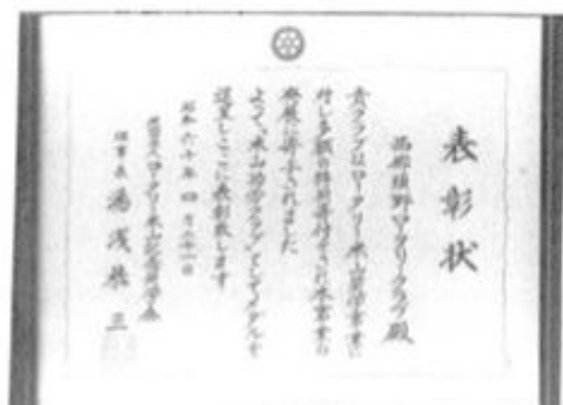 表彰状
西那須野ロータリークラブ殿
貴クラブはロータリー米山奨学事業に
対し多額の特別寄付をされ本事業の
発展に寄与されました
よって米山功労クラブとしてメダルを
贈呈しここに表彰致します
昭和六十年四月三十日
ロータリー米山記念奨学会
理事長 湯浅恭三